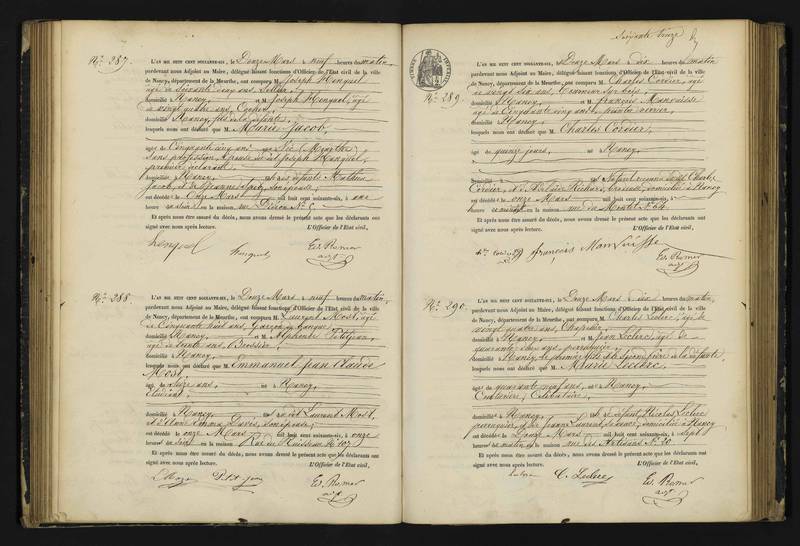 Nº 287.
L'AN MIL HUIT CENT SOIXANTE-SIX, le Douze Mars à neuf heures du matin,
pardevant nous Adjoint au Maire, délégué faisant fonctions d'Officier de l'Etat civil de la ville
de Nancy, département de la Meurthe, ont comparu M. Joseph Henquel,
âgé de soixante cinq ans, Sellier,
domicilié à Nancy, et M. Joseph Henquel, âgé
de vingt quatre ans,
domicilié à Nancy, fils de la défunte,
lesquels nous ont déclaré que M. Marie Jacob,
âgée de Cinquante cinq ans, née à Vic (Meurthe)
Sans profession, Epouse de dit Joseph Henquel,
premier déclarant,
domiciliée à Nancy, des défunts Mathieu
Jacob, et de Jeanne son épouse,
est décédée le Onze Mars mil huit cent soixante-six, à une
heure du en la maison, rue
Et après nous être assuré du décès, nous avons dressé le présent acte que les déclarants ont
signé avec nous après lecture. L'Officier de l'Etat civil,
henquel henquel Ed. Romer
adjt
Nº 288.
L'AN MIL HUIT CENT SOIXANTE-SIX, le Douze Mars à neuf heures du matin,
pardevant nous Adjoint au Maire, délégué faisant fonctions d'Officier de l'Etat civil de la ville
de Nancy, département de la Meurthe, ont comparu M. Laurent Most, âgé
de Cinquante huit ans, Garçon de banque,
domicilié à Nancy, et M. Alphonse Petitjean,
âgé de trente ans, Brossier,
domicilié à Nancy,
lesquels nous ont déclaré que M. Emmanuel Jean Claude
Most,
âgé de seize ans, né à Nancy,
Etudiant,
domicilié à Nancy, fils de dit Laurent Most,
et d'Anne son épouse,
est décédé le onze Mars mil huit cent soixante-six, à onze
heures du soir en la maison, rue du Ruisseau Nº 107
Et après nous être assuré du décès, nous avons dressé le présent acte que les déclarants ont
signé avec nous après lecture. L'Officier de l'Etat civil,
Petitjean Ed. Romer
adjt
Soixante treize
TIMBRE IMPÉRIAL
Nº 289.
L'AN MIL HUIT CENT SOIXANTE-SIX, le Douze Mars à dix heures du matin
pardevant nous Adjoint au Maire, délégué faisant fonctions d'Officier de l'Etat civil de la ville
de Nancy, département de la Meurthe, ont comparu M. Charles Cordier, âgé
de vingt six ans, Tourneur sur bois,
domicilié à Nancy, et M. François Mansuisse
âgé de Cinquante cinq ans, peintre verrier,
domicilié à Nancy,
lesquels nous ont déclaré que M. Charles Cordier,
âgé de quinze jours, né à Nancy,
domicilié à Enfant reconnu dudit Charles
Cordier, et d'Adélaïde Richard, brodeuse, domiciliée à Nancy
est décédé le onze Mars mil huit cent soixante-six, à
heures de en la maison, rue du Montet Nº 64
Et après nous être assuré du décès, nous avons dressé le présent acte que les déclarants ont
signé avec nous après lecture. L'Officier de l'Etat civil,
françois Mansuisse
Ed. Romer
adjt
Nº 290.
L'AN MIL HUIT CENT SOIXANTE-SIX, le Douze Mars à dix heures du matin,
pardevant nous Adjoint au Maire, délégué faisant fonctions d'Officier de l'Etat civil de la ville
de Nancy, département de la Meurthe, ont comparu M. Charles Leclerc, âgé de
vingt quatre ans, Chapelier,
domicilié à Nancy, et M. Jean Leclerc, âgé de
quarante deux ans, perruquier,
domicilié à Nancy, le premier fils et le second frère de la défunte,
lesquels nous ont déclaré que M. Marie Leclerc,
âgée de quarante neuf ans, née à Nancy,
Couturière, Célibataire,
domiciliée à Nancy, de défunt Nicolas Leclerc
perruquier, et de Jeanne domiciliée à Nancy
est décédée le Douze Mars mil huit cent soixante-six, à sept
heures du matin en la maison, rue des Artisans Nº 20
Et après nous être assuré du décès, nous avons dressé le présent acte que les déclarants ont
signé avec nous après lecture. L'Officier de l'Etat civil,
C. Leclerc Ed. Romer
adjt